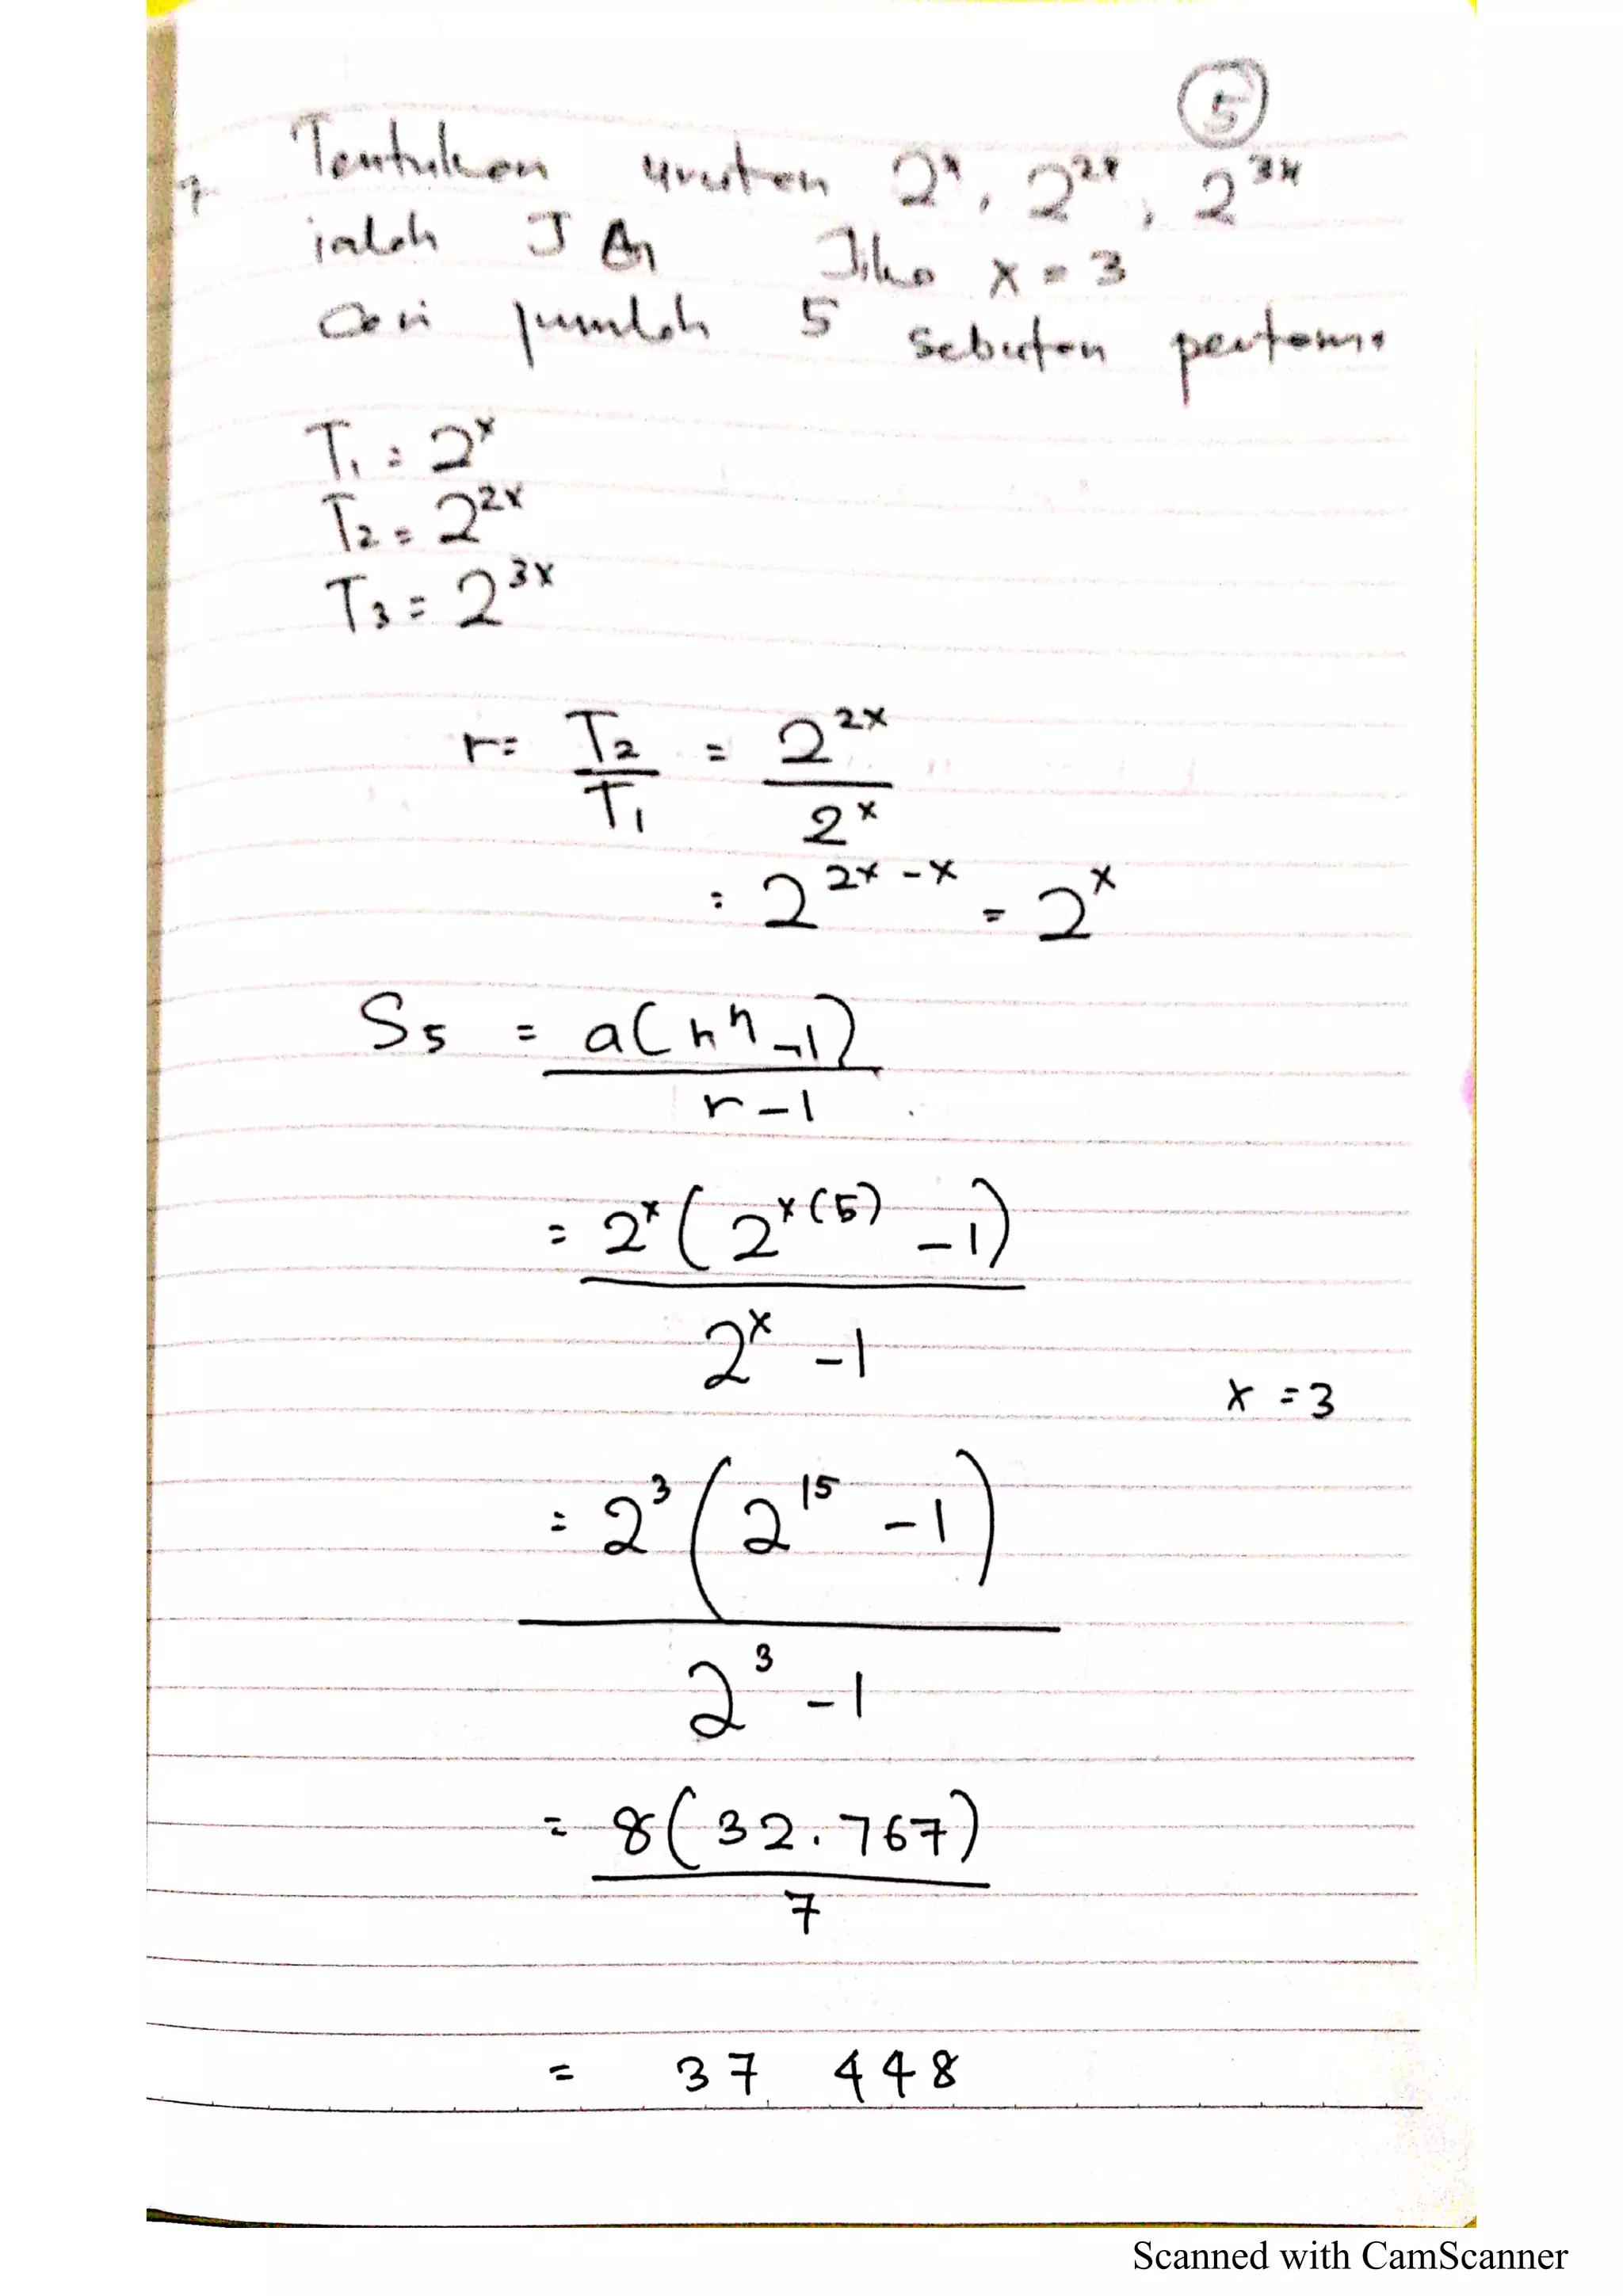 5
7. Tentukan urutan 2^x, 2^2x, 2^3x
ialah JG Jika x = 3
Cari jumlah 5 sebutan pertama
T1 = 2^x
T2 = 2^2x
T3 = 2^3x
r = T2/T1 = 2^2x/2^x
= 2^2x-x = 2^x
S5 = a(r^n -1)/r-1
= 2^x(2^x(5) -1)/2^x -1
x = 3
= 2^3(2^15 -1)/2^3 -1
= 8(32.767)/7
= 37 448
Scanned with CamScanner